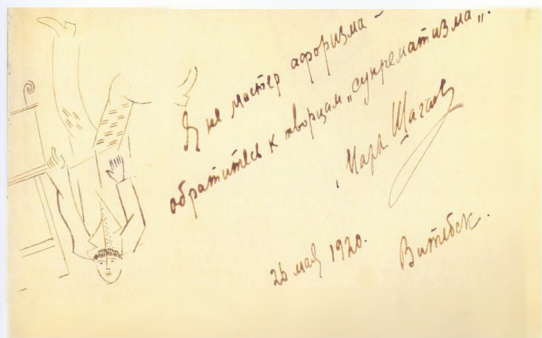 Я не мастер афоризма –
обратитесь к творцам „супрематизма„.
Марк Шагал
26 мая 1920.
Витебск.